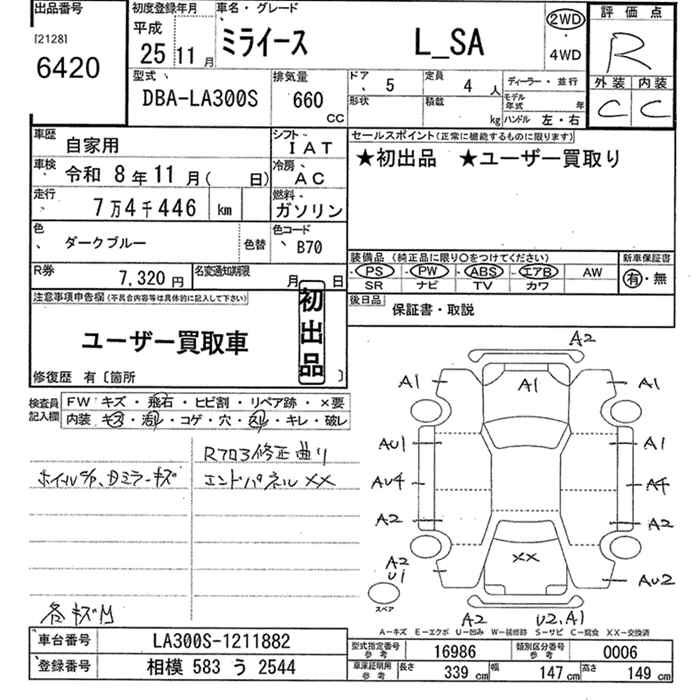 出品番号
[2128]
6420
初度登録年月
平成
25 11月
車名・グレード
ミライース L_SA
2WD
・
4WD
評価点
R
外装 内装
C C
型式
DBA-LA300S
排気量
660
CC
ドア 5
形状
定員 4 人
積載 kg
ディーラー・並行
モデル年式 年
ハンドル 左・右
車歴 自家用
シフト IAT
車検 令和 8年11月( 日)
冷房 AC
走行 7万4千446 km
燃料 ガソリン
色 ダークブルー
色替
色コード B70
R券 7,320 円
名変通知期限 月 日
セールスポイント(正常に機能するものに限ります)
★初出品 ★ユーザー買取り
装備品(純正品に限り○をつけてください)
新車保証書
PS PW ABS エアB AW
SR ナビ TV カワ
有・無
後日品
保証書・取説
注意事項申告欄(不具合内容等は具体的に記入して下さい)
ユーザー買取車
初出品
修復歴 有〔箇所 〕
検査員記入欄
FW キズ・飛石・ヒビ割・リペア跡・×要
内装 キズ・汚れ・コゲ・穴・スレ・キレ・破レ
Rフロア修正曲り
エンドパネル××
各キズ凹
A2
A1 A1 A1
AU1 A1
AU4 A4
A2 A2
××
A2
U1
AU2
A2 U2.A1
スペア
A―キズ E―エクボ U―凹み W―補修跡 S―サビ C―腐食 XX―交換済
車台番号 LA300S-1211882
登録番号 相模 583 う 2544
型式指定番号 参考 16986
類別区分番号 参考 0006
車庫証明用 参考 長さ 339 cm 幅 147 cm 高さ 149 cm